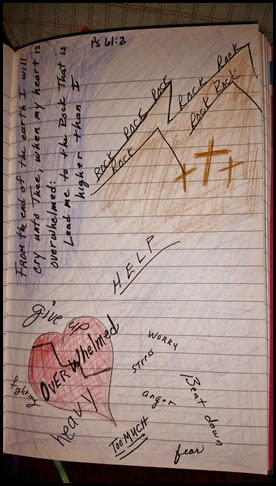 Ps 61:2
From the end of the earth I will
cry unto Thee, when my heart is
overwhelmed:
Lead me to the Rock That is
higher than I
Rock Rock Rock
Rock
Rock Rock Rock
Rock Rock
HELP
give up
OVERWhelmed
fighting
heavy
WORRY
STRESS
anger
Beat down
TOO MUCH
fear